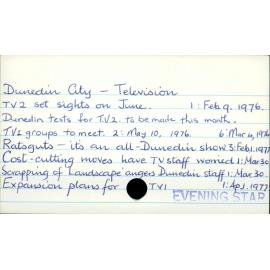 Dunedin City - Television
TV2 set sights on June. 1: Feb 9. 1976.
Dunedin tests for T.V.2. to be made this month.
TV2 groups to meet. 2: May 10, 1976. 6: Mar 4, 1976
Ratsguts - it's an all-Dunedin show 3: Feb 1. 1977
Cost-cutting moves have TV staff worried 1: Mar 30
Scrapping of Landscape angers Dunedin staff 1: Mar 30.
Expansion plans for TV1 1: Apl. 1977
EVENING STAR